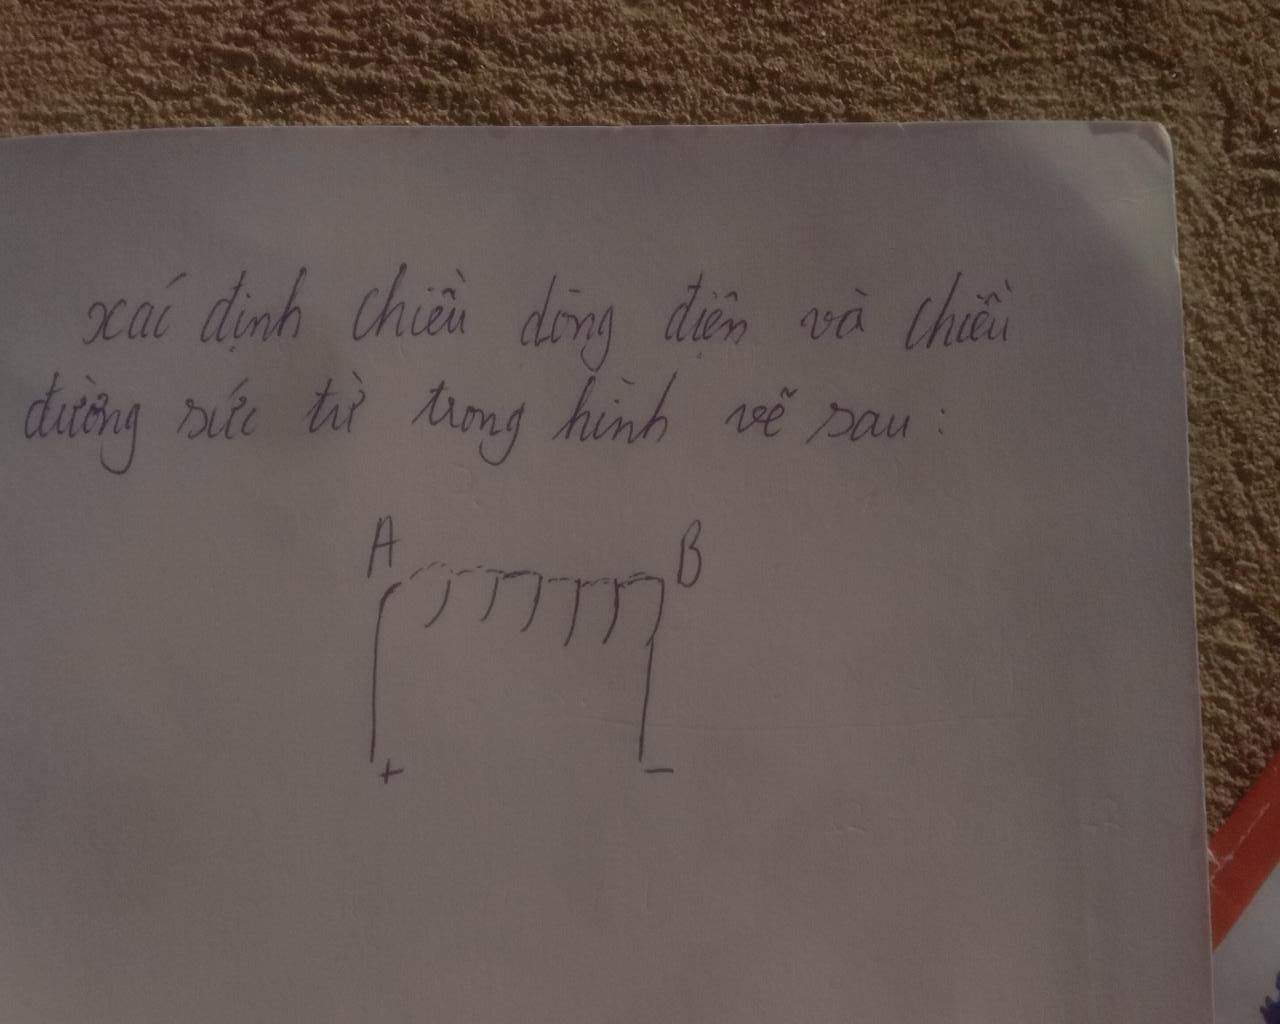 xác định chiều dòng điện và chiều
đường sức từ trong hình vẽ sau:
A B
+ -